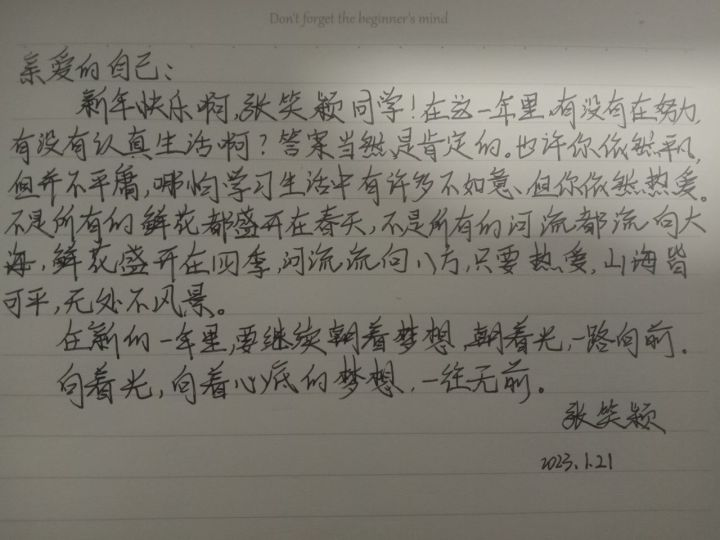 Don't forget the beginner's mind
亲爱的自己：
新年快乐啊，张笑颖同学！在这一年里，有没有在努力，
有没有认真生活啊？答案当然是肯定的。也许你依然平凡，
但并不平庸，哪怕学习生活中有许多不如意，但你依然热爱。
不是所有的鲜花都盛开在春天，不是所有的河流都流向大
海，鲜花盛开在四季，河流流向八方，只要热爱，山海皆
可平，无处不风景。
在新的一年里，要继续朝着梦想，朝着光，一路向前。
向着光，向着心底的梦想，一往无前。
张笑颖
2023.1.21